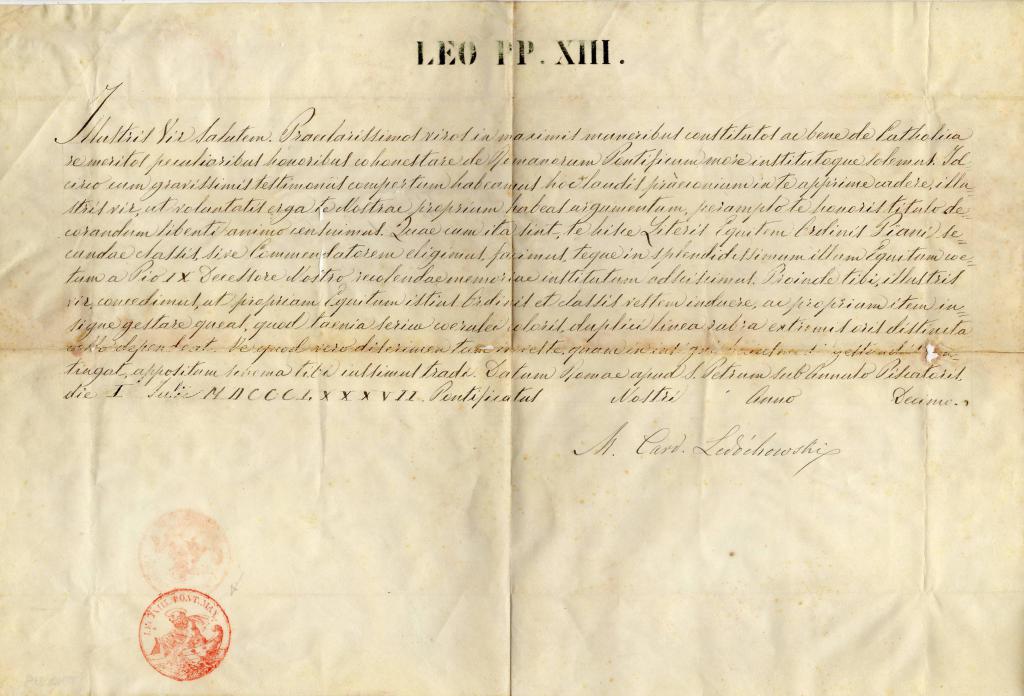 LEO PP. XIII.
Illustris Vir Salutem. Praeclarissimos viros in maximis muneribus constitutos ac bene de Catholica
re meritos peculiaribus honoribus cohonestare de Romanorum Pontificum more institutoque solemus. Id=
circo cum gravissimis testimoniis compertum habeamus hoc laudis praeconium in te apprime cadere, illu=
stris vir, ut voluntatis erga te Nostrae proprium habeas argumentum, peramplo te honoris titulo de=
corandum libenti animo censuimus. Quae cum ita sint, te hisce Literis Equitem Ordinis Piani se=
cundae classis, sive Commendatorem eligimus, facimus, teque in splendidissimum illum Equitum coe=
tum a Pio IX Decessore Nostro, recolendae memoriae institutum adsciscimus. Proinde tibi, illustris
vir, concedimus, ut propriam Equitum istius Ordinis et classis vestem induere, ac propriam item in=
signe gestare queas, quod taenia serica coerulei coloris, duplici linea rubra extremis oris distincta
collo dependeat. Ne quod vero discrimen tam in veste, quam in
tingat, appositum schema tibi iussimus tradi. Datum Romae apud S. Petrum sub Annulo Piscatoris,
die I Julii MDCCCLXXXVII. Pontificatus Nostri Anno Decimo.
M. Card. Ledóchowski
LEO XIII PONT. MAX.